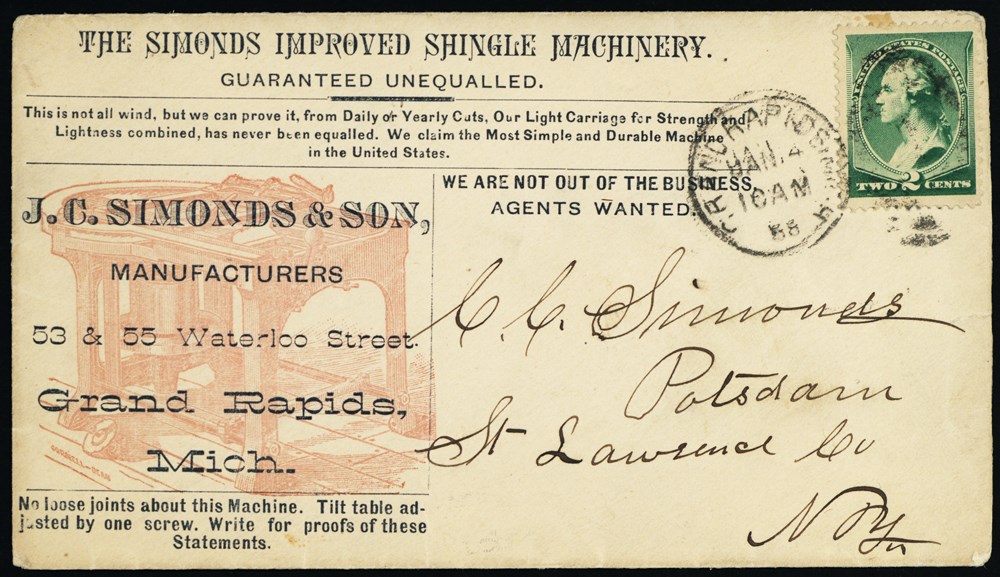 THE SIMONDS IMPROVED SHINGLE MACHINERY.
GUARANTEED UNEQUALLED.
This is not all wind, but we can prove it, from Daily or Yearly Cuts, Our Light Carriage for Strength and
Lightness combined, has never been equalled. We claim the Most Simple and Durable Machine
in the United States.
J. C. SIMONDS & SON,
MANUFACTURERS
53 & 55 Waterloo Street.
Grand Rapids,
Mich.
No loose joints about this Machine. Tilt table ad-
justed by one screw. Write for proofs of these
Statements.
WE ARE NOT OUT OF THE BUSINESS,
AGENTS WANTED.
GRAND RAPIDS
JAN 4
10 AM
88
UNITED STATES POSTAGE
TWO 2 CENTS
C. C. Simonds
Potsdam
St Lawrence Co
N. Y.